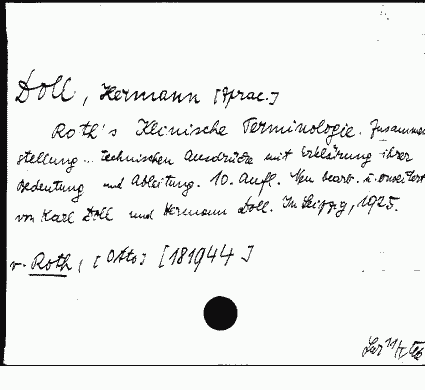 Doll, Hermann [Aprac.]
Roth's Klinische Terminologie. Zusammen
stellung... technischen Ausdrücke mit Erklärung ihrer
Bedeutung und Ableitung. 10. Aufl. Neu bearb. u. erweitert
von Karl Doll und Hermann Doll. In Leipzig, 1925.
v. Roth, [Otto] [181944]